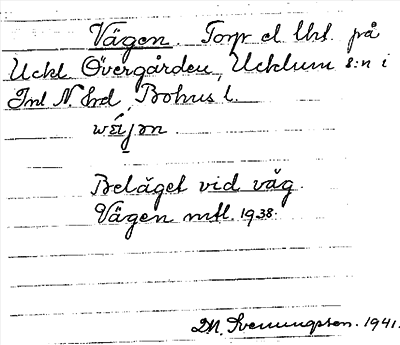 Vägen. Torp el. lht. på
Uckl Övergården, Ucklum s:n i
Inl N. Hrd, Bohus l.
Beläget vid väg.
Vägen mtl. 1938.
Svenungsson. 1941.